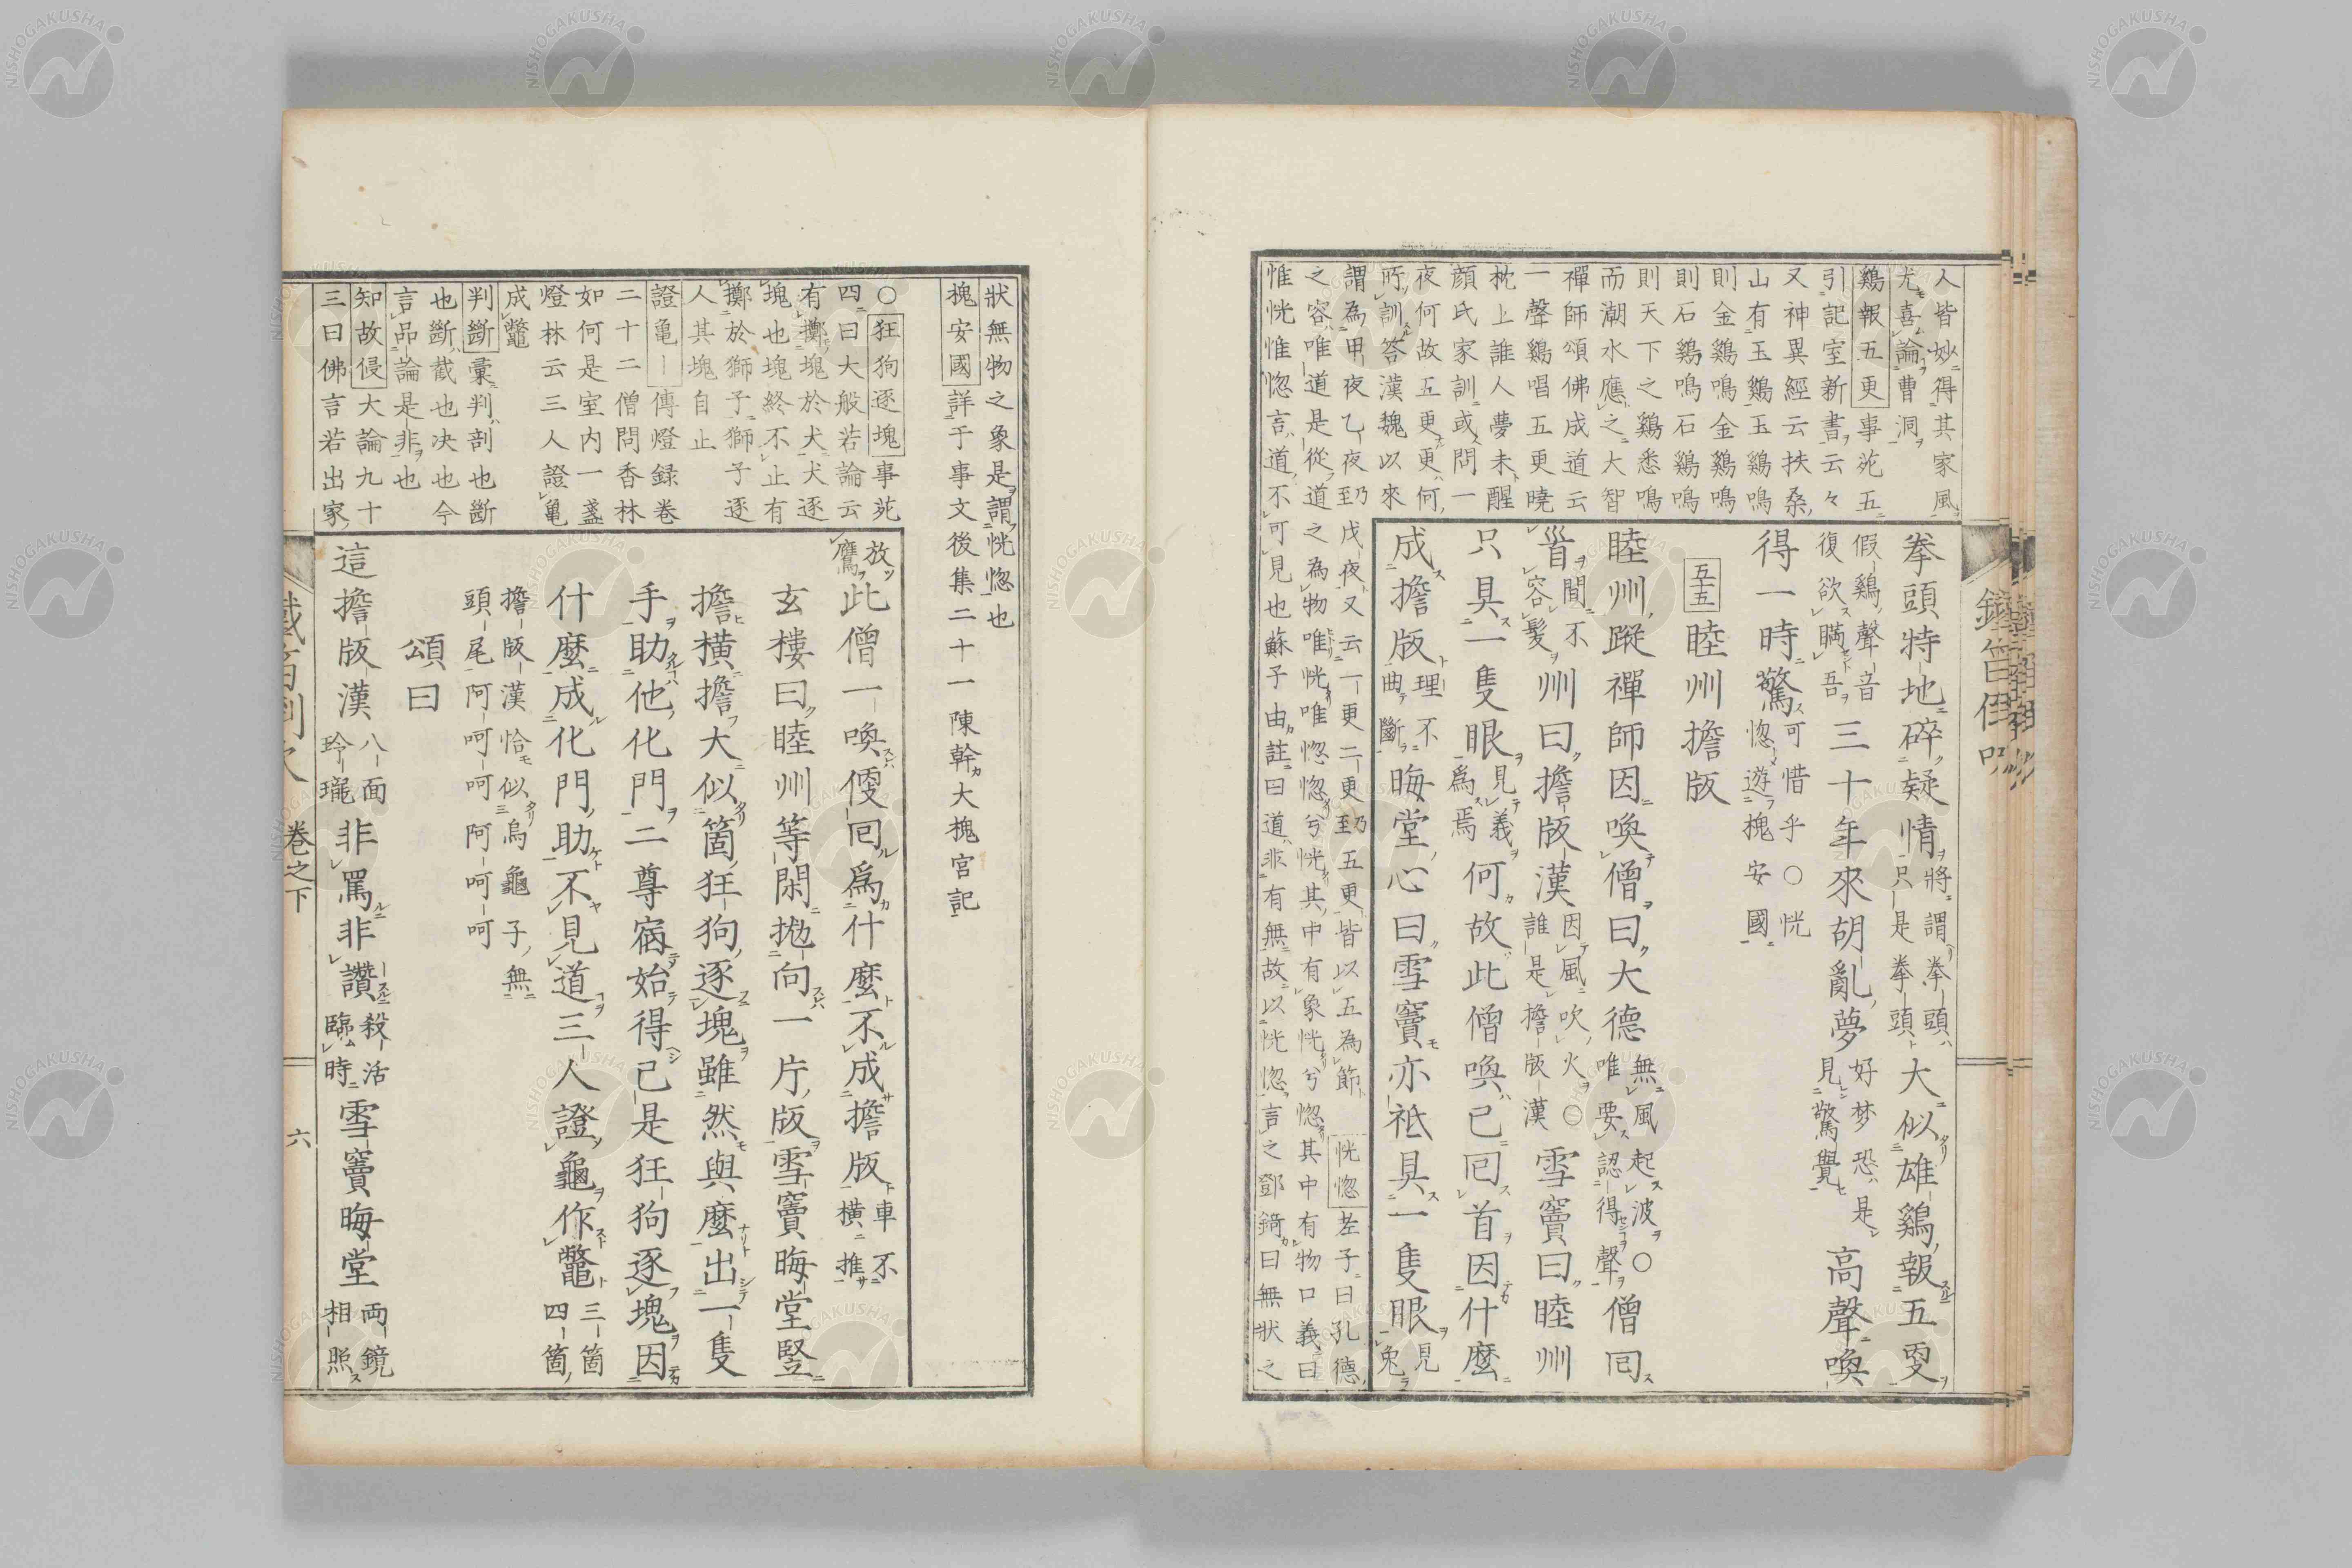 人皆妙得其家風
尤喜論曹洞
鷄報五更事苑五
引記室新書云々
又神異經云扶桑
山有玉鷄玉鷄鳴
則金鷄鳴金鷄鳴
則石鷄鳴石鷄鳴
則天下之鷄悉鳴
而潮水應之大智
禪師頌佛成道云
一聲鷄唱五更曉
枕上誰人夢未醒
顔氏家訓或問一
夜何故五更更何
所訓答漢魏以來
謂為甲夜乙夜乃至戊夜又云一更二更乃至五更皆以五為節 恍惚老子曰孔德
之容唯道是從道之為物唯恍唯惚惚兮恍其中有象恍兮惚其中有物口義曰
惟恍惟惚言道不可見也蘇子由註曰道非有無故以恍惚言之鄧錡曰無狀之
拳頭特地碎疑情將謂拳頭只是拳頭大似雄鷄報五更
假鷄聲音復欲瞞吾三十年來胡亂夢好梦恐是見驚覺高聲喚
得一時驚可惜乎○恍惚遊槐安國
五十五 睦州擔版
睦州蹤禪師因喚僧曰大德無風起波○唯要認得聲僧回
首間不容髪州曰擔版漢因風吹火○誰是擔版漢雪竇曰睦州
只具一隻眼見義爲焉何故此僧喚已回首因什麼
成擔版理不曲斷晦堂心曰雪竇亦祗具一隻眼見兔
狀無物之象是謂恍惚也
槐安國詳于事文後集二十一陳幹大槐宮記
○狂狗逐塊事苑
四曰大般若論云
有擲塊於犬犬逐
塊也塊終不止有
擲於獅子獅子逐
人其塊自止
證亀｜傳燈録卷
二十二僧問香林
如何是室内一盞
燈林云三人證亀
成鼈
判斷彙判剖也斷
也斷截也决也今
言品論是非也
知故侵大論九十
三曰佛言若出家
放鷹此僧一喚便回爲什麼不成擔版車不橫推
玄樓曰睦州等閑拋向一片版雪竇晦堂竪
擔橫擔大似箇狂狗逐塊雖然與麼出一隻
手助他化門二尊宿始得已是狂狗逐塊因
什麼成化門助不見道三人證龜作鼈三箇四箇
擔版漢恰似烏龜子無頭尾阿呵呵阿呵呵
頌曰
這擔版漢八面玲瓏非罵非讚殺活臨時雪竇晦堂両鏡相照
卷之下
六
NISHOGAKUSHA